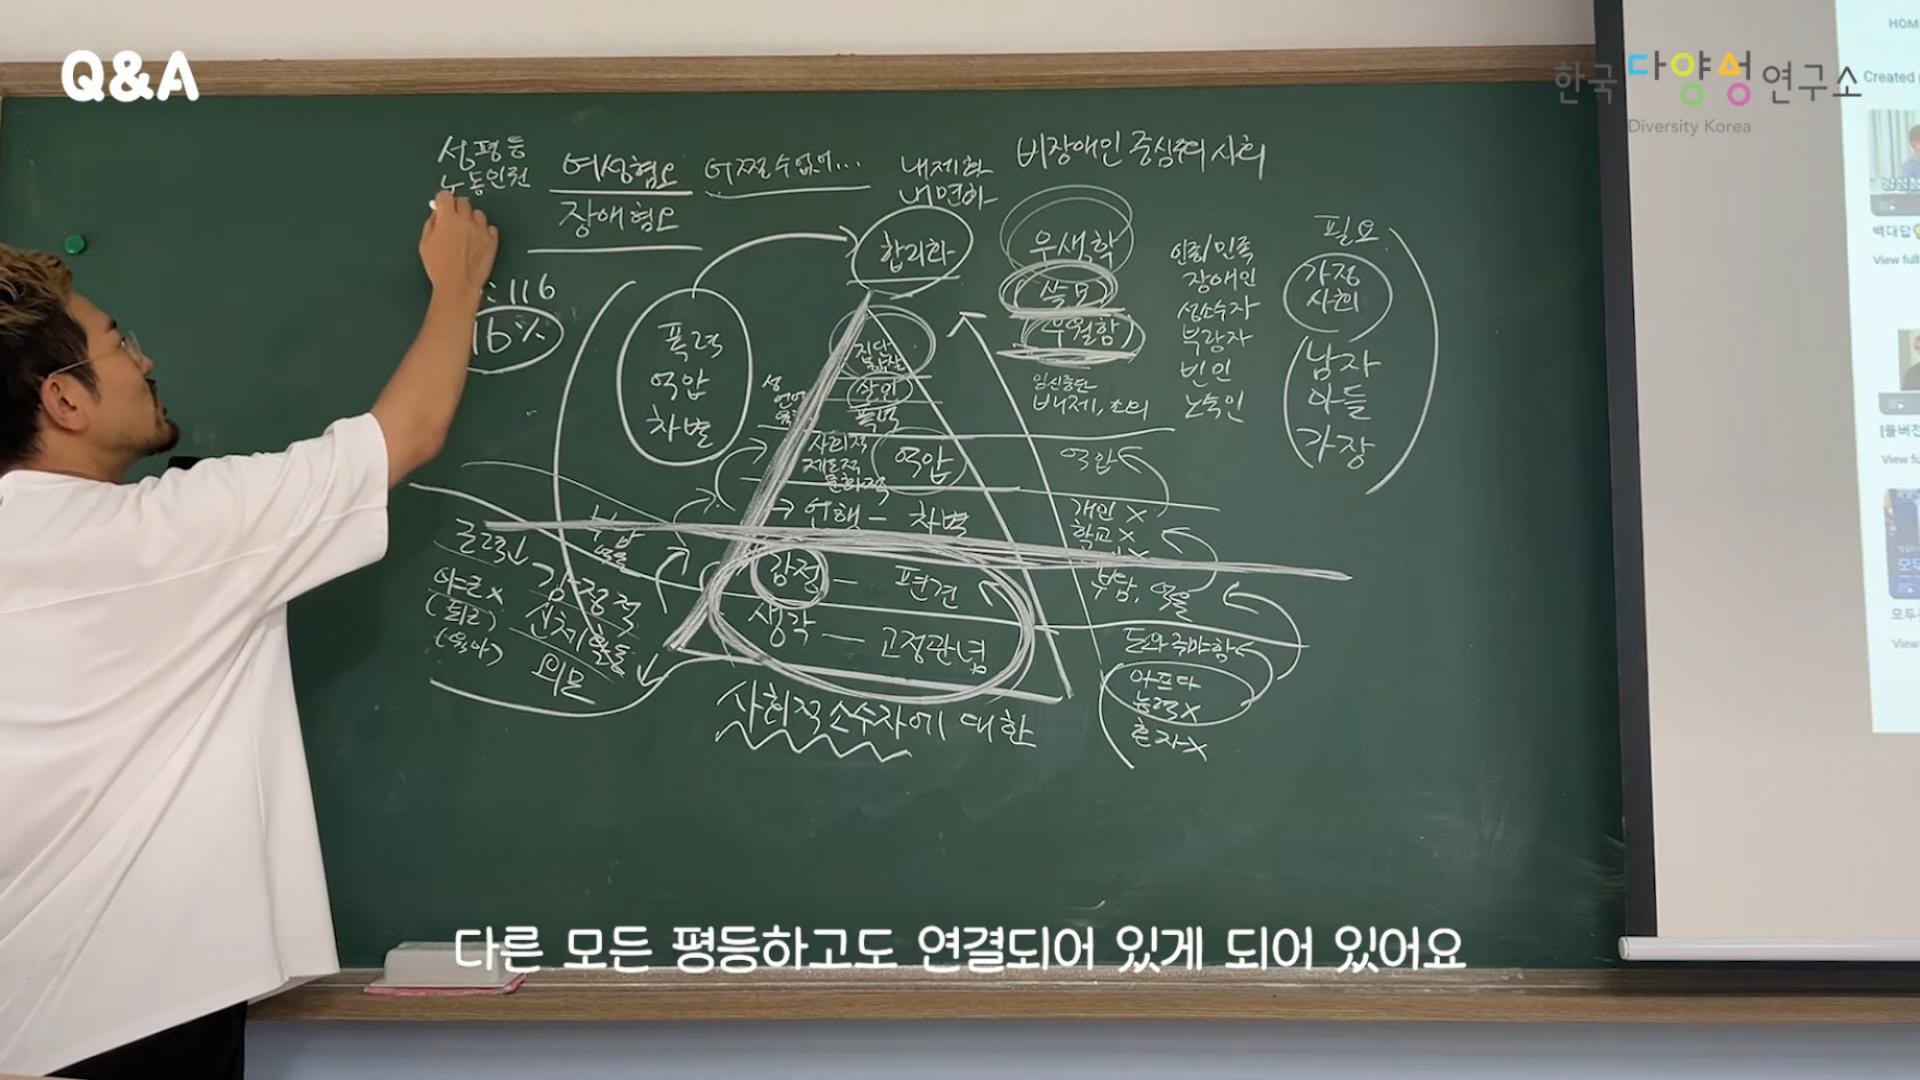 Q&A
한국다양성연구소
Diversity Korea
HOM
Created
성평등
노동인권
여성혐오
장애혐오
어쩔 수 없어...
내제화
내면화
비장애인 중심주의 사회
:116
16%
폭력
억압
차별
합리화
집단
학살
살인
폭력
성
언어
사회적
제도적
문화적
억압
→ 언행 - 차별
감정 - 편견
생각 - 고정관념
사회적 소수자에 대한
우생학
쓸모
우월함
임신중단
배제, 회의
인종/민족
장애인
성소수자
부랑자
빈인
노숙인
필요
가정
사회
남자
아들
가장
억압
개인 X
학교 X
부담, 역할
도와줘야함
아프다
능력 X
혼자 X
근력↓
야근 X
(퇴근)
(육아)
감정적
신체활동
외모
View full
[풀버전
View fu
모두
View
다른 모든 평등하고도 연결되어 있게 되어 있어요